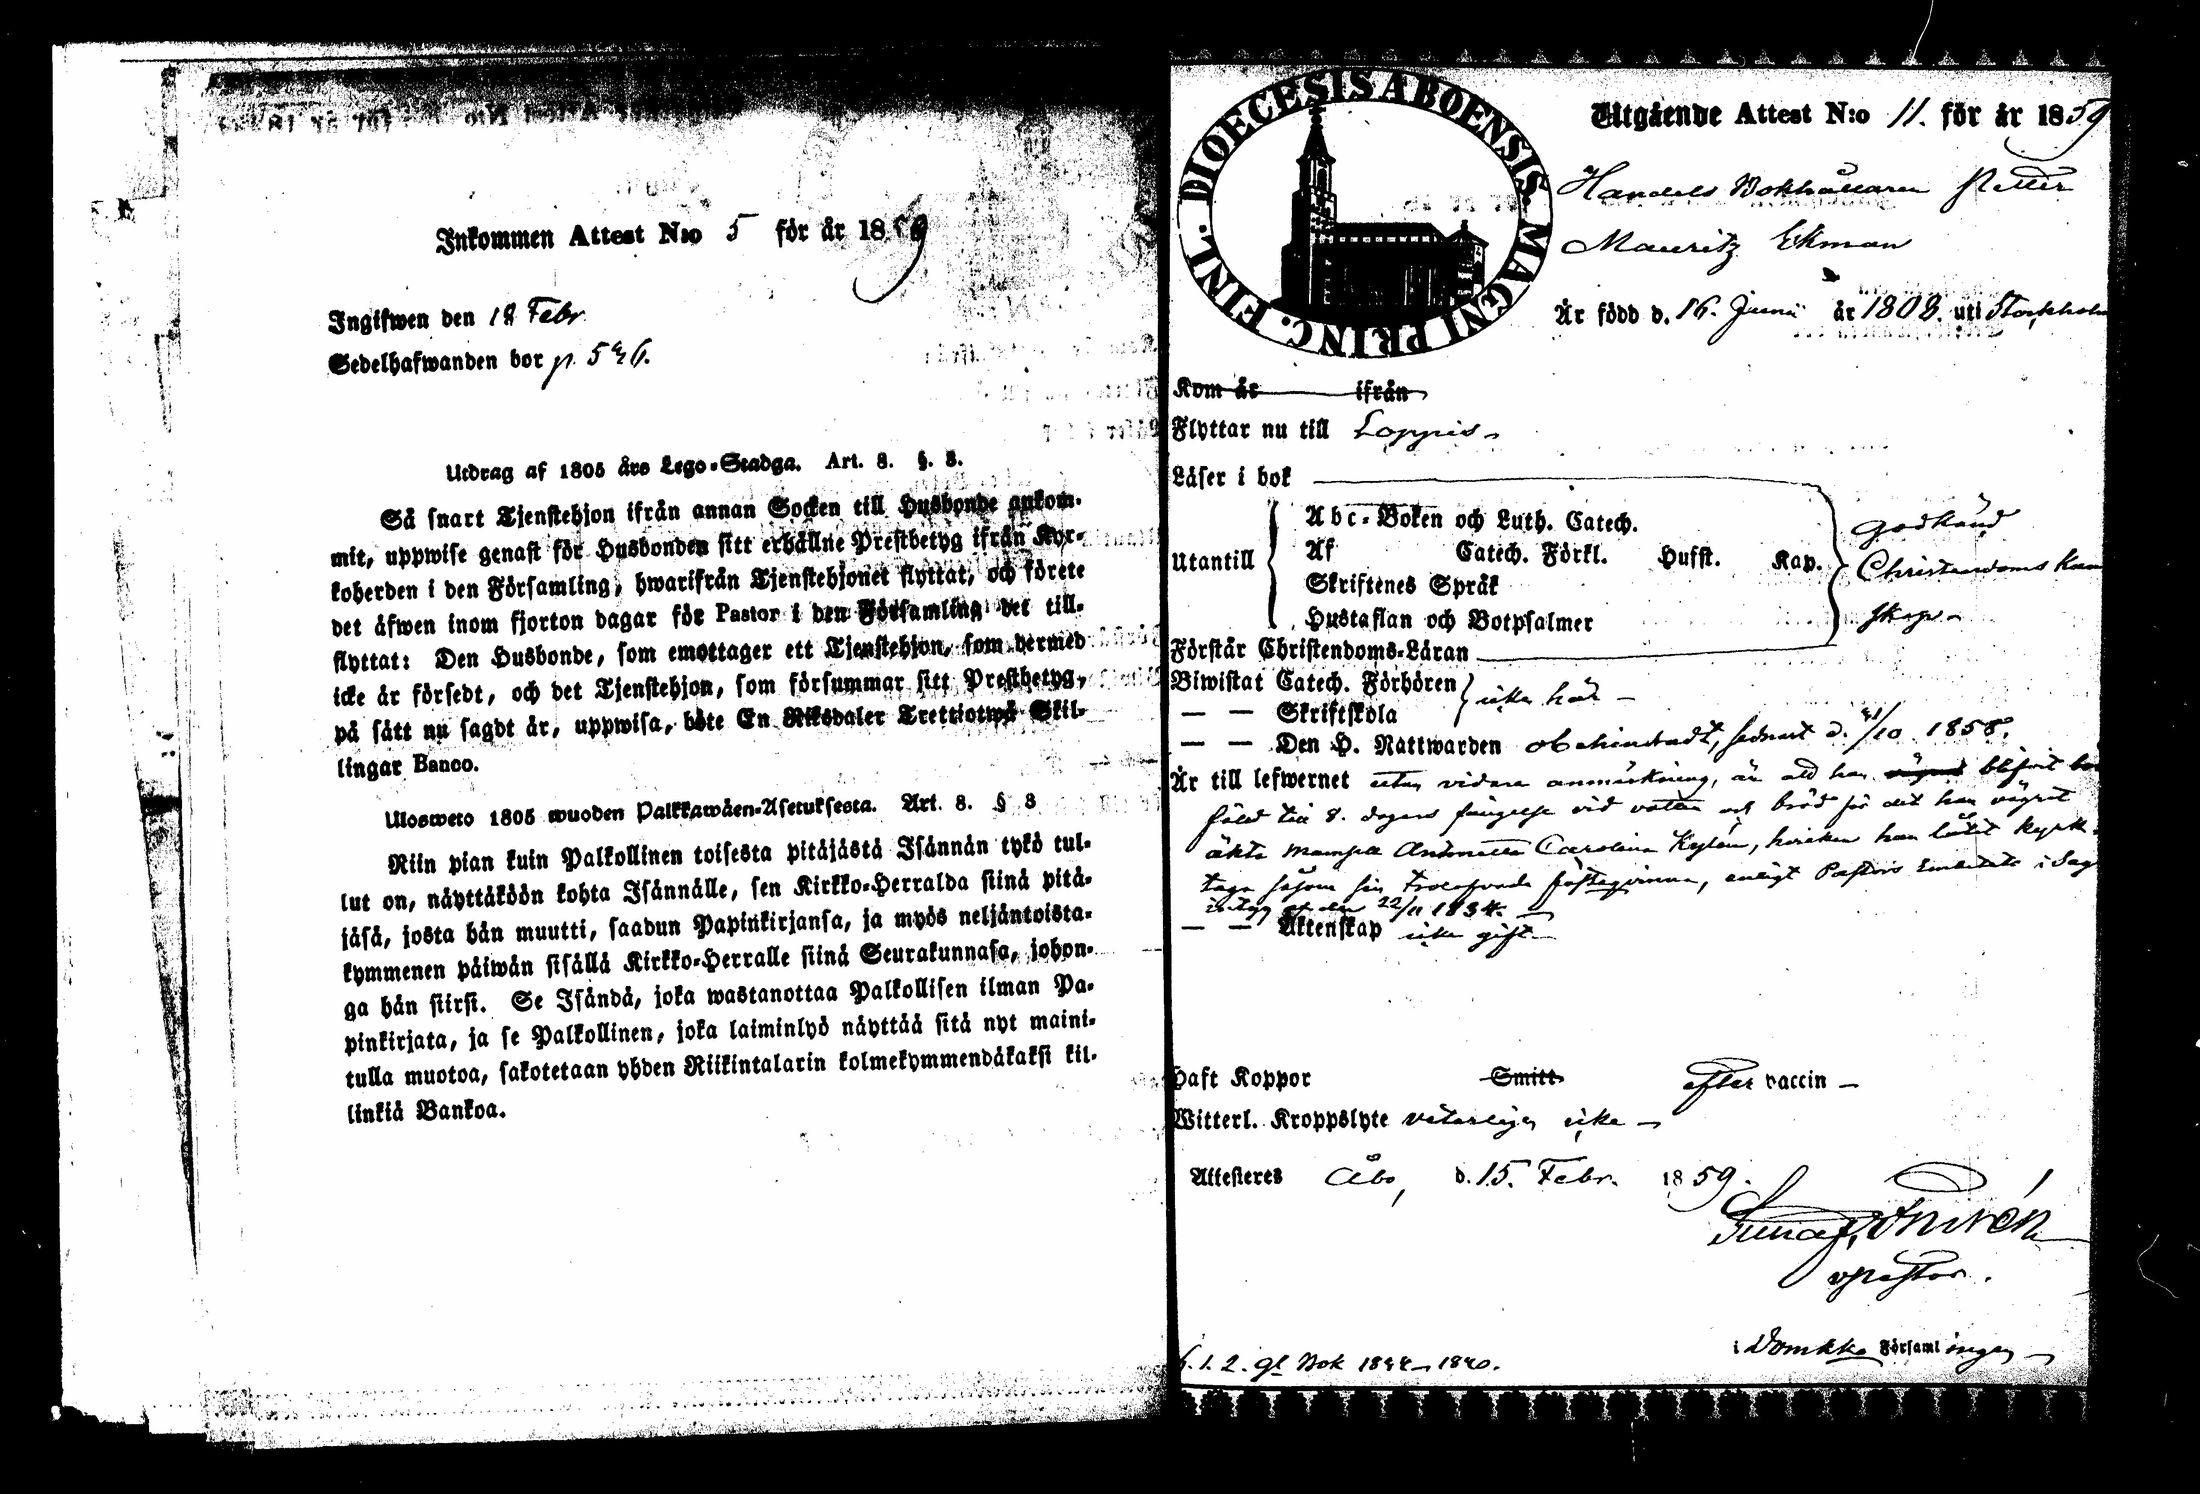 Inkommen Attest N:o 5 för år 1859
Ingifwen den 18 Febr.
Sedelhafwanden bor p. 546.
Utdrag af 1805 års Lego-Stadga. Art. 8. §. 8.
Så snart Tjenstehjon ifrån annan Socken till Husbonde ankom-
mit, uppwise genast för Husbonden sitt erhållne Prestbetyg ifrån Kyr-
koherden i den Församling, hwarifrån Tjenstehjonet flyttat, och förete
det äfwen inom fjorton dagar för Pastor i den Församling det till-
flyttat: Den Husbonde, som emottager ett Tjenstehjon, som dermed
icke är försedt, och det Tjenstehjon, som försummar sitt Prestbetyg,
på sätt nu sagdt är, uppwisa, böte En Riksdaler Trettiotwå Skil-
lingar Banco.
Ulosweto 1805 wuoden Palkkawäen-Asetuksesta. Art. 8. § 8
Niin pian kuin Palkollinen toisesta pitäjästä Isännän tykö tul-
lut on, näyttäköön kohta Isännälle, sen Kirkko-Herralda siinä pitä-
jäsä, josta hän muutti, saadun Papinkirjansa, ja myös neljäntoista-
kymmenen päiwän sisällä Kirkko-Herralle siinä Seurakunnasa, johon-
ga hän siirsi. Se Isändä, joka wastanottaa Palkollisen ilman Pa-
pinkirjata, ja se Palkollinen, joka laiminlyö näyttää sitä nyt maini-
tulla muotoa, sakotetaan yhden Riikintalarin kolmekymmendäkaksi kil-
linkiä Bankoa.
DIOECESIS ABOENSIS. MAGNI PRINC. FINL.
Utgående Attest N:o 11. för år 1859
Handels Bokhållaren Petter
Mauritz Ekman
Är född d. 16. Junii år 1808. uti Stockholm
Kom år ifrån
Flyttar nu till Loppis
Läser i bok
Utantill
Abc-Boken och Luth. Catech.
Af Catech. Förkl. Hufst. Kap.
Skriftenes Språk
Hustaflan och Botpsalmer
godkänd
Christendoms kun
skap
Förstår Christendoms-Läran
Biwistat Catech. Förhören
— — Skriftskola
icke här
— — Den H. Nattwarden obehindradt, sednast d. /10 1858.
Är till lefwernet utan vidare anmärkning, än att han blifvit
fäld till 8. dagars fängelse vid vatten och bröd för det han vägrat
äkta Mamsell Antonetta Carolina Kylén, hvicken han låtit kyrk-
taga såsom sin trolofvade fästeqvinna, enligt Pastors Embetets i Sag
intyg af den 22/11 1834.
— — Äktenskap icke gift
Haft Koppor Smitt efter vaccin
Witterl. Kroppslyte veterligen icke
Attesteres Åbo, d. 15. Febr. 1859.
vPastor.
i Domkko Församlingen
1. 2. gl Bok 1840.